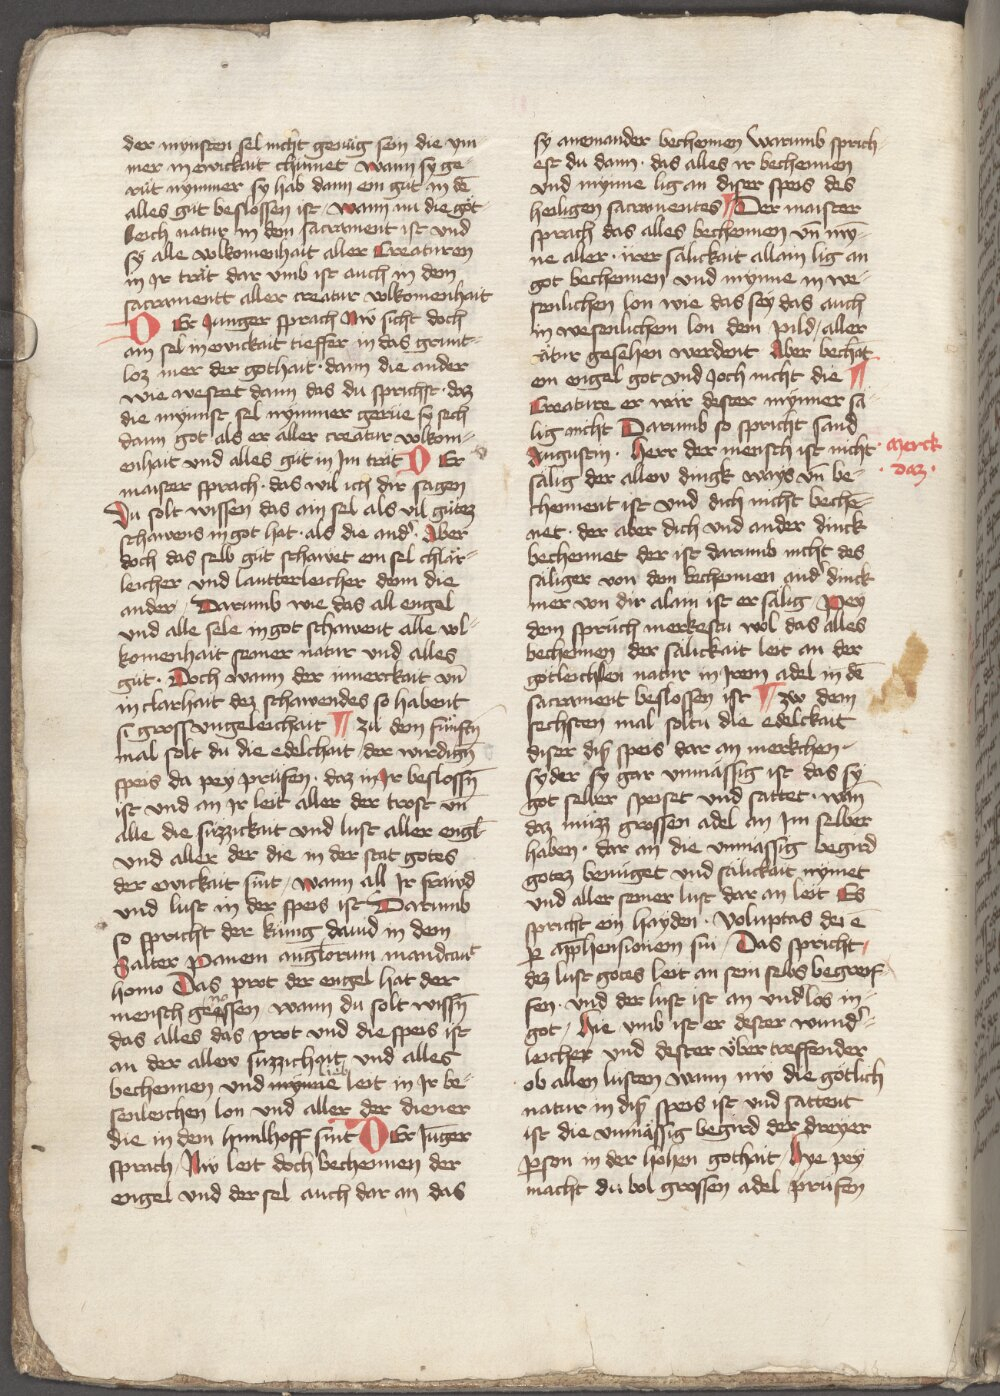 der mynsten sel nicht genüg sein die ym-
mer in ewickait chümet wann sy ge-
rüt nymmer sy hab dann ein güt in dē
alles güt beslossen ist / wann nu die göt-
leich natur in dem sacrament ist und
sy alle volkomenhait aller Creaturen
in Ir trät dar umb ist auch in dem
sacramentt aller creatur volkomenhait
DEr Junger sprach Nw sicht doch
ain sel in ewickait tieffer in das grunt-
loz mer der gothait · dann die ander
wie westet dann das du sprichst · daz
die mynnst sel nymmer gerüe so sich
dann got als er aller creatur volkom-
enhait und alles güt in Im trät DEr
maister sprach · das wil ich dir sagen
Du solt wissen das ain sel als vil gütez
schawens in got hat · als die and' · Aber
doch das selb güt schawet ein sel chlär-
leicher und lautterleicher denn die
ander / Darumb wie das all engel
und alle sele in got schawent alle vol-
komenhait seiner natur und alles
güt · Doch wann der innerckait vn̄
in clarhait dez schawendes so habent
s gross vngeleichait ¶ zu dem fünftn̄
mal solt du die edelchait / der wirdign̄
speis da pey prüfen · daz in Ir beslossn̄
ist und an Ir leit aller der trost vn̄
alle die süzzickait und lust aller engl
und aller der die in der stat gotes
der ewickait sint / wann all Ir frawd
und lust in der speis ist Darumb
so spricht der künig dauid in dem
Salter Panem anglorum manducaut
homo Das prot der engel hat der
mensch gessen wann du solt wissn̄
das alles das prot und die speis ist
an der aller suzzichait und alles
bechennen und mynne lieb leit in Ir be-
senleichen lon und aller der diener
die in dem himlhoff sint DEr Juger
sprach / Nw leit doch bechennen der
engel und der sel auch dar an das
sy aneinander bechennen Warumb sprich-
est du dann · das alles ir bechennen
und mynne lig an diser speis des
heiligen sacramentes ¶ Der maister
sprach das alles bechennen vn̄ my-
ne aller · irer salickait allain lig an
got bechennen und mynne in we-
senlichen lon wie das sey das auch
in wesenlichem lon dem pild / aller
ratur gesehen werdent Aber bechät
ein engel got und Joch nicht die ¶
Creature er wär dester mynner sä-
lig nicht Darumb so spricht sand
Augustin · Herr der mensch ist nicht
sälig der allew dingk ways vn̄ be-
chennent ist und dich nicht bechē-
net · der aber dich und ander dinck
bechennet der ist darumb nicht des
säliger von dem bechennen and' dinck
mer von dir alain ist er sälig / Pey
dem sprüch merkestu wol das alles
bechennen der sälickait leit an der
götleichen natur in Irem adel in dē
sacrament beslossen ist ¶ zw dem
sechsten mal soltu die edelckait
diser speis dar an merkchen ·
syder sy gar unmässig ist das sy
got selber speiset und sattet · wan̄
daz müzz grossen adel an Im selber
haben · dar an die unmassig begird
gotez benüget und sälickait nymet
und aller seiner lust dar an leit Es
spricht ein hayden · Voluptas dei ē
p apphensionem sui / Das spricht /
dez lust gotes leit an sein selbs begreif-
fen · und der lust ist an und'los in-
got / Hie umb ist er dester wund'-
leicher und dester über treffender
ob allen lusten wann nw die götlich
natur in dis' speis ist und sattent
ist die unmässig begird der dreyer
pson in der hohen gothait / Hye pey
macht du wol grossen adel prüfen
Merck
· daz ·